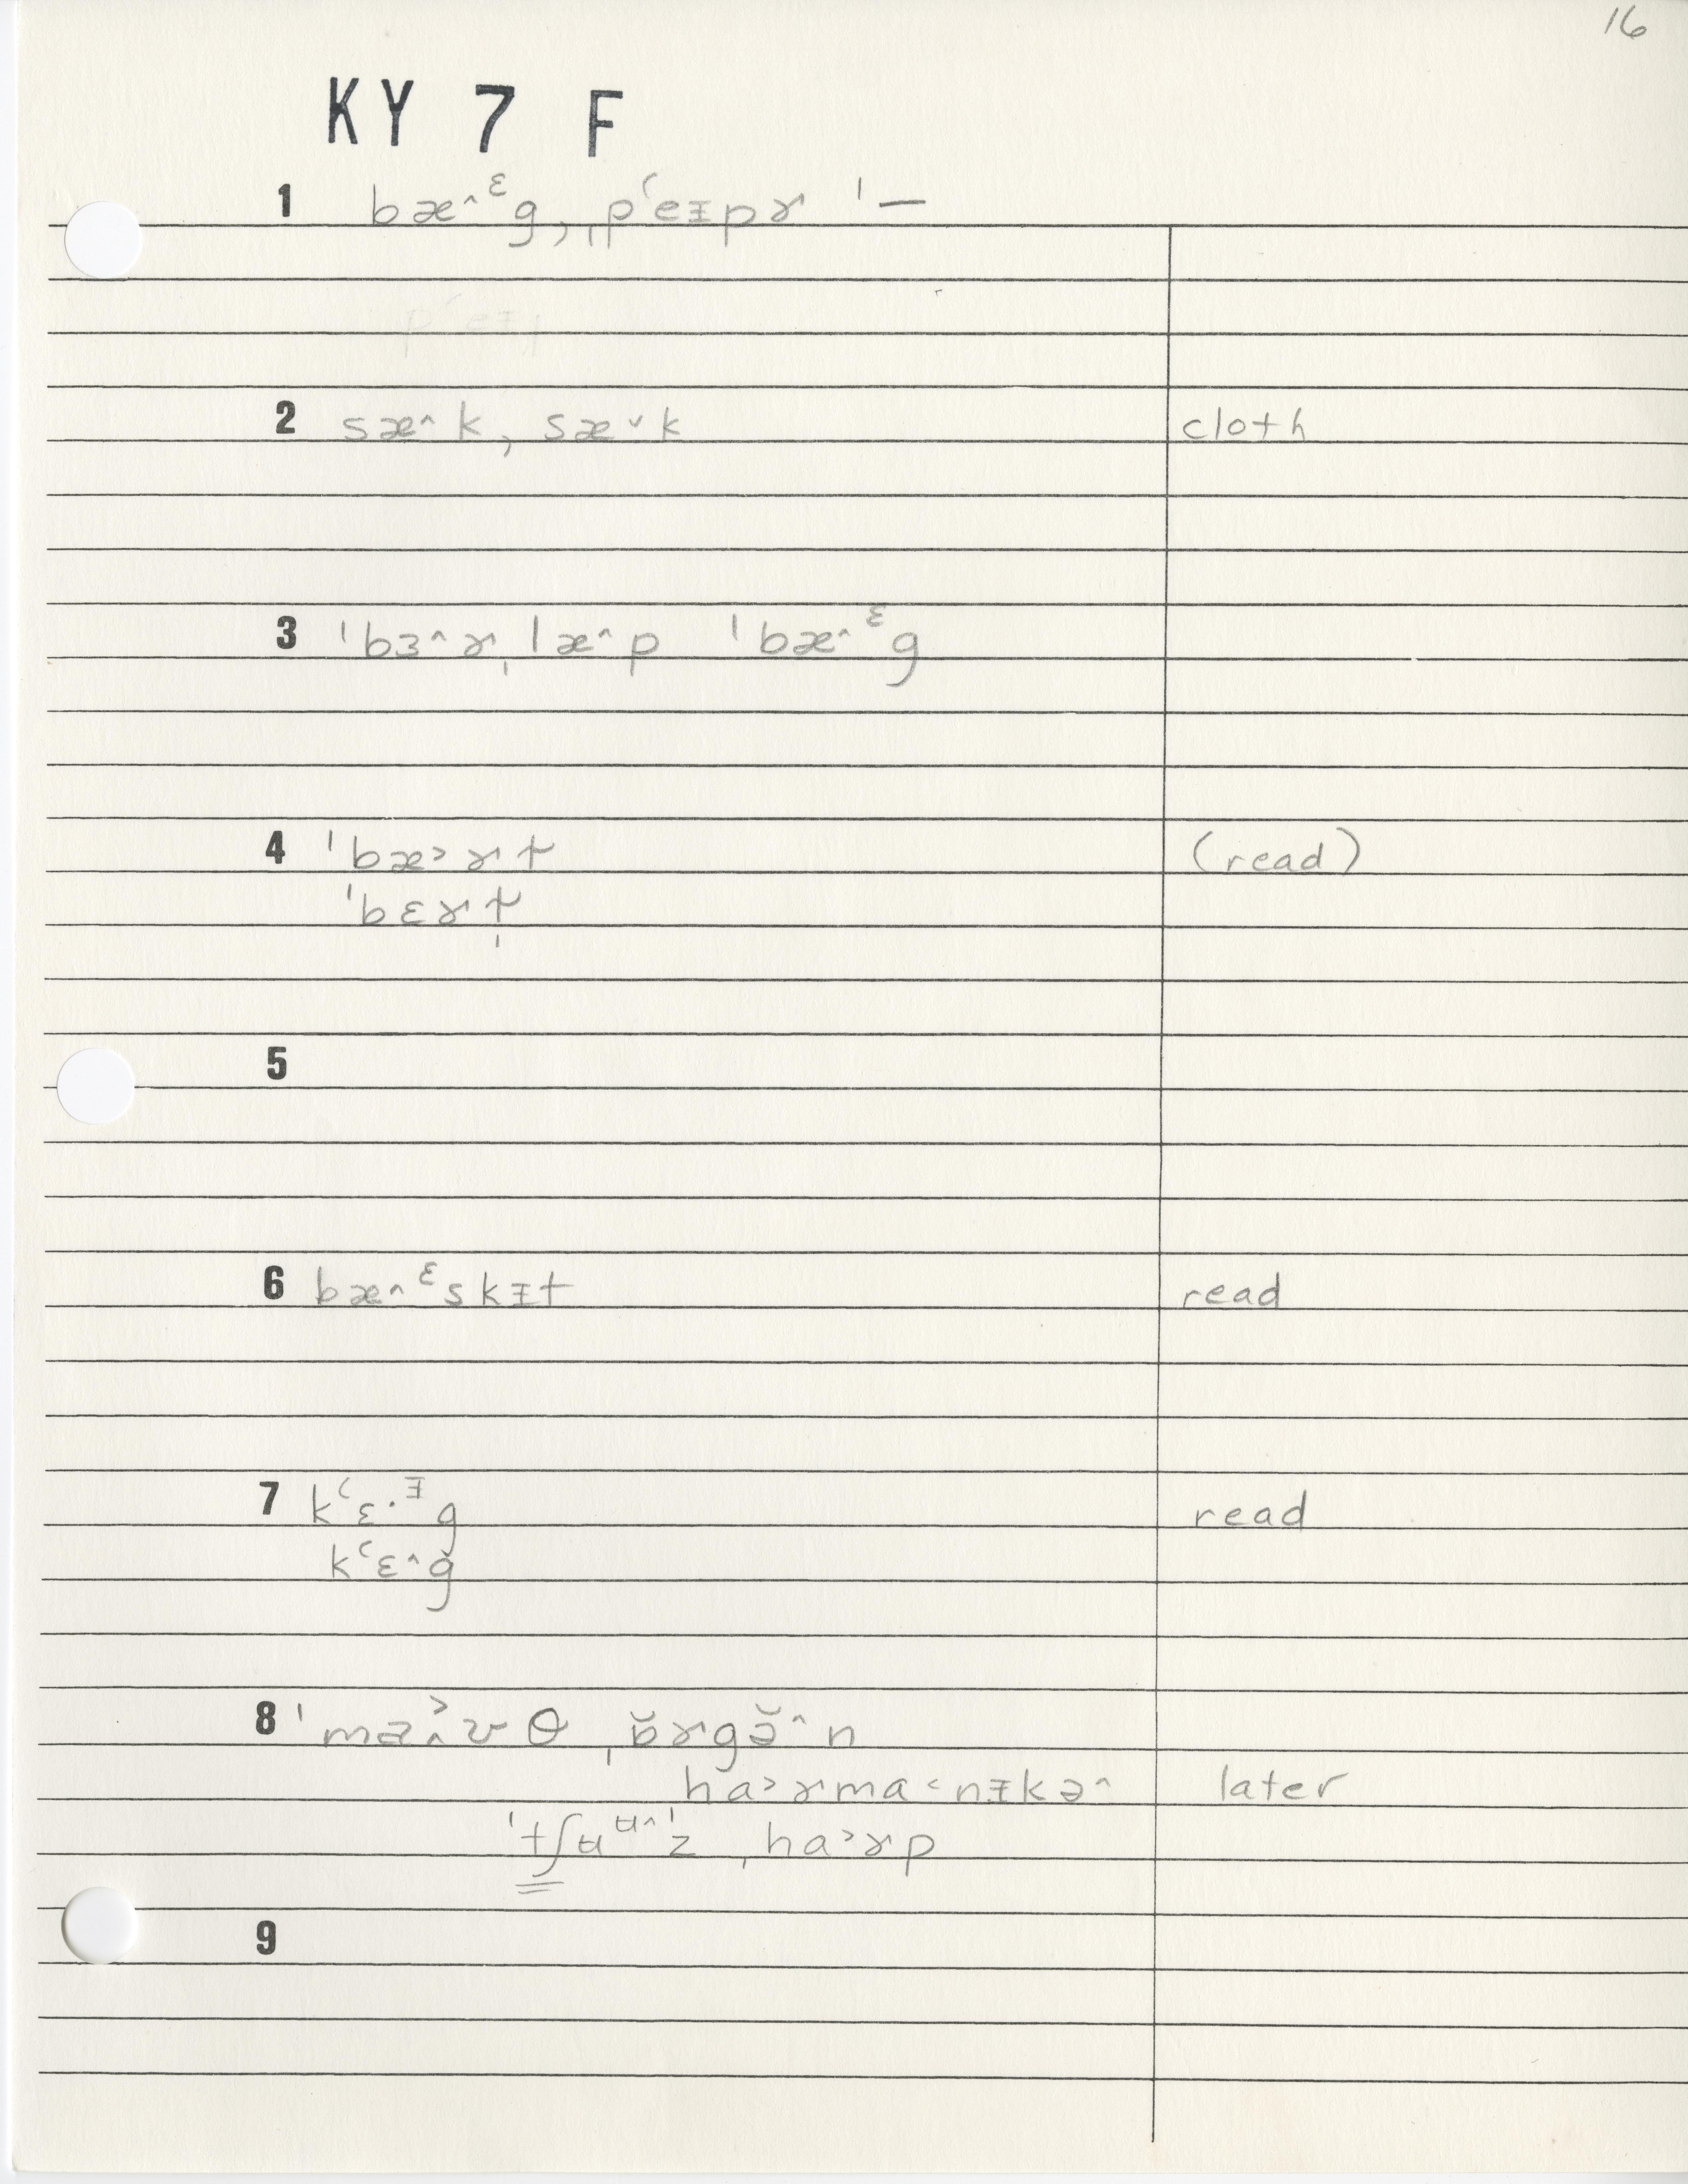 16
KY 7 F
1 bæ^ᵋg, ˌpʻeᵻpɚ ˈ—
2 sæ^k, sæˇk cloth
3 ˈbɜ^ɚˌlæ^p ˈbæ^ᵋg
4 ˈbæ>ɚt̬ (read)
ˈbɛɚt̬
5
6 bæ^ᵋskᵻt read
7 kʻɛ·ᶧg read
kʻɛ^g
8 ˈma>^ʊθ ˌɔ̆ɚgə̆^n
ha>ɚma<nᵻkə^ later
ˈtʃʉᶶ^z ˌha>ɚp
9